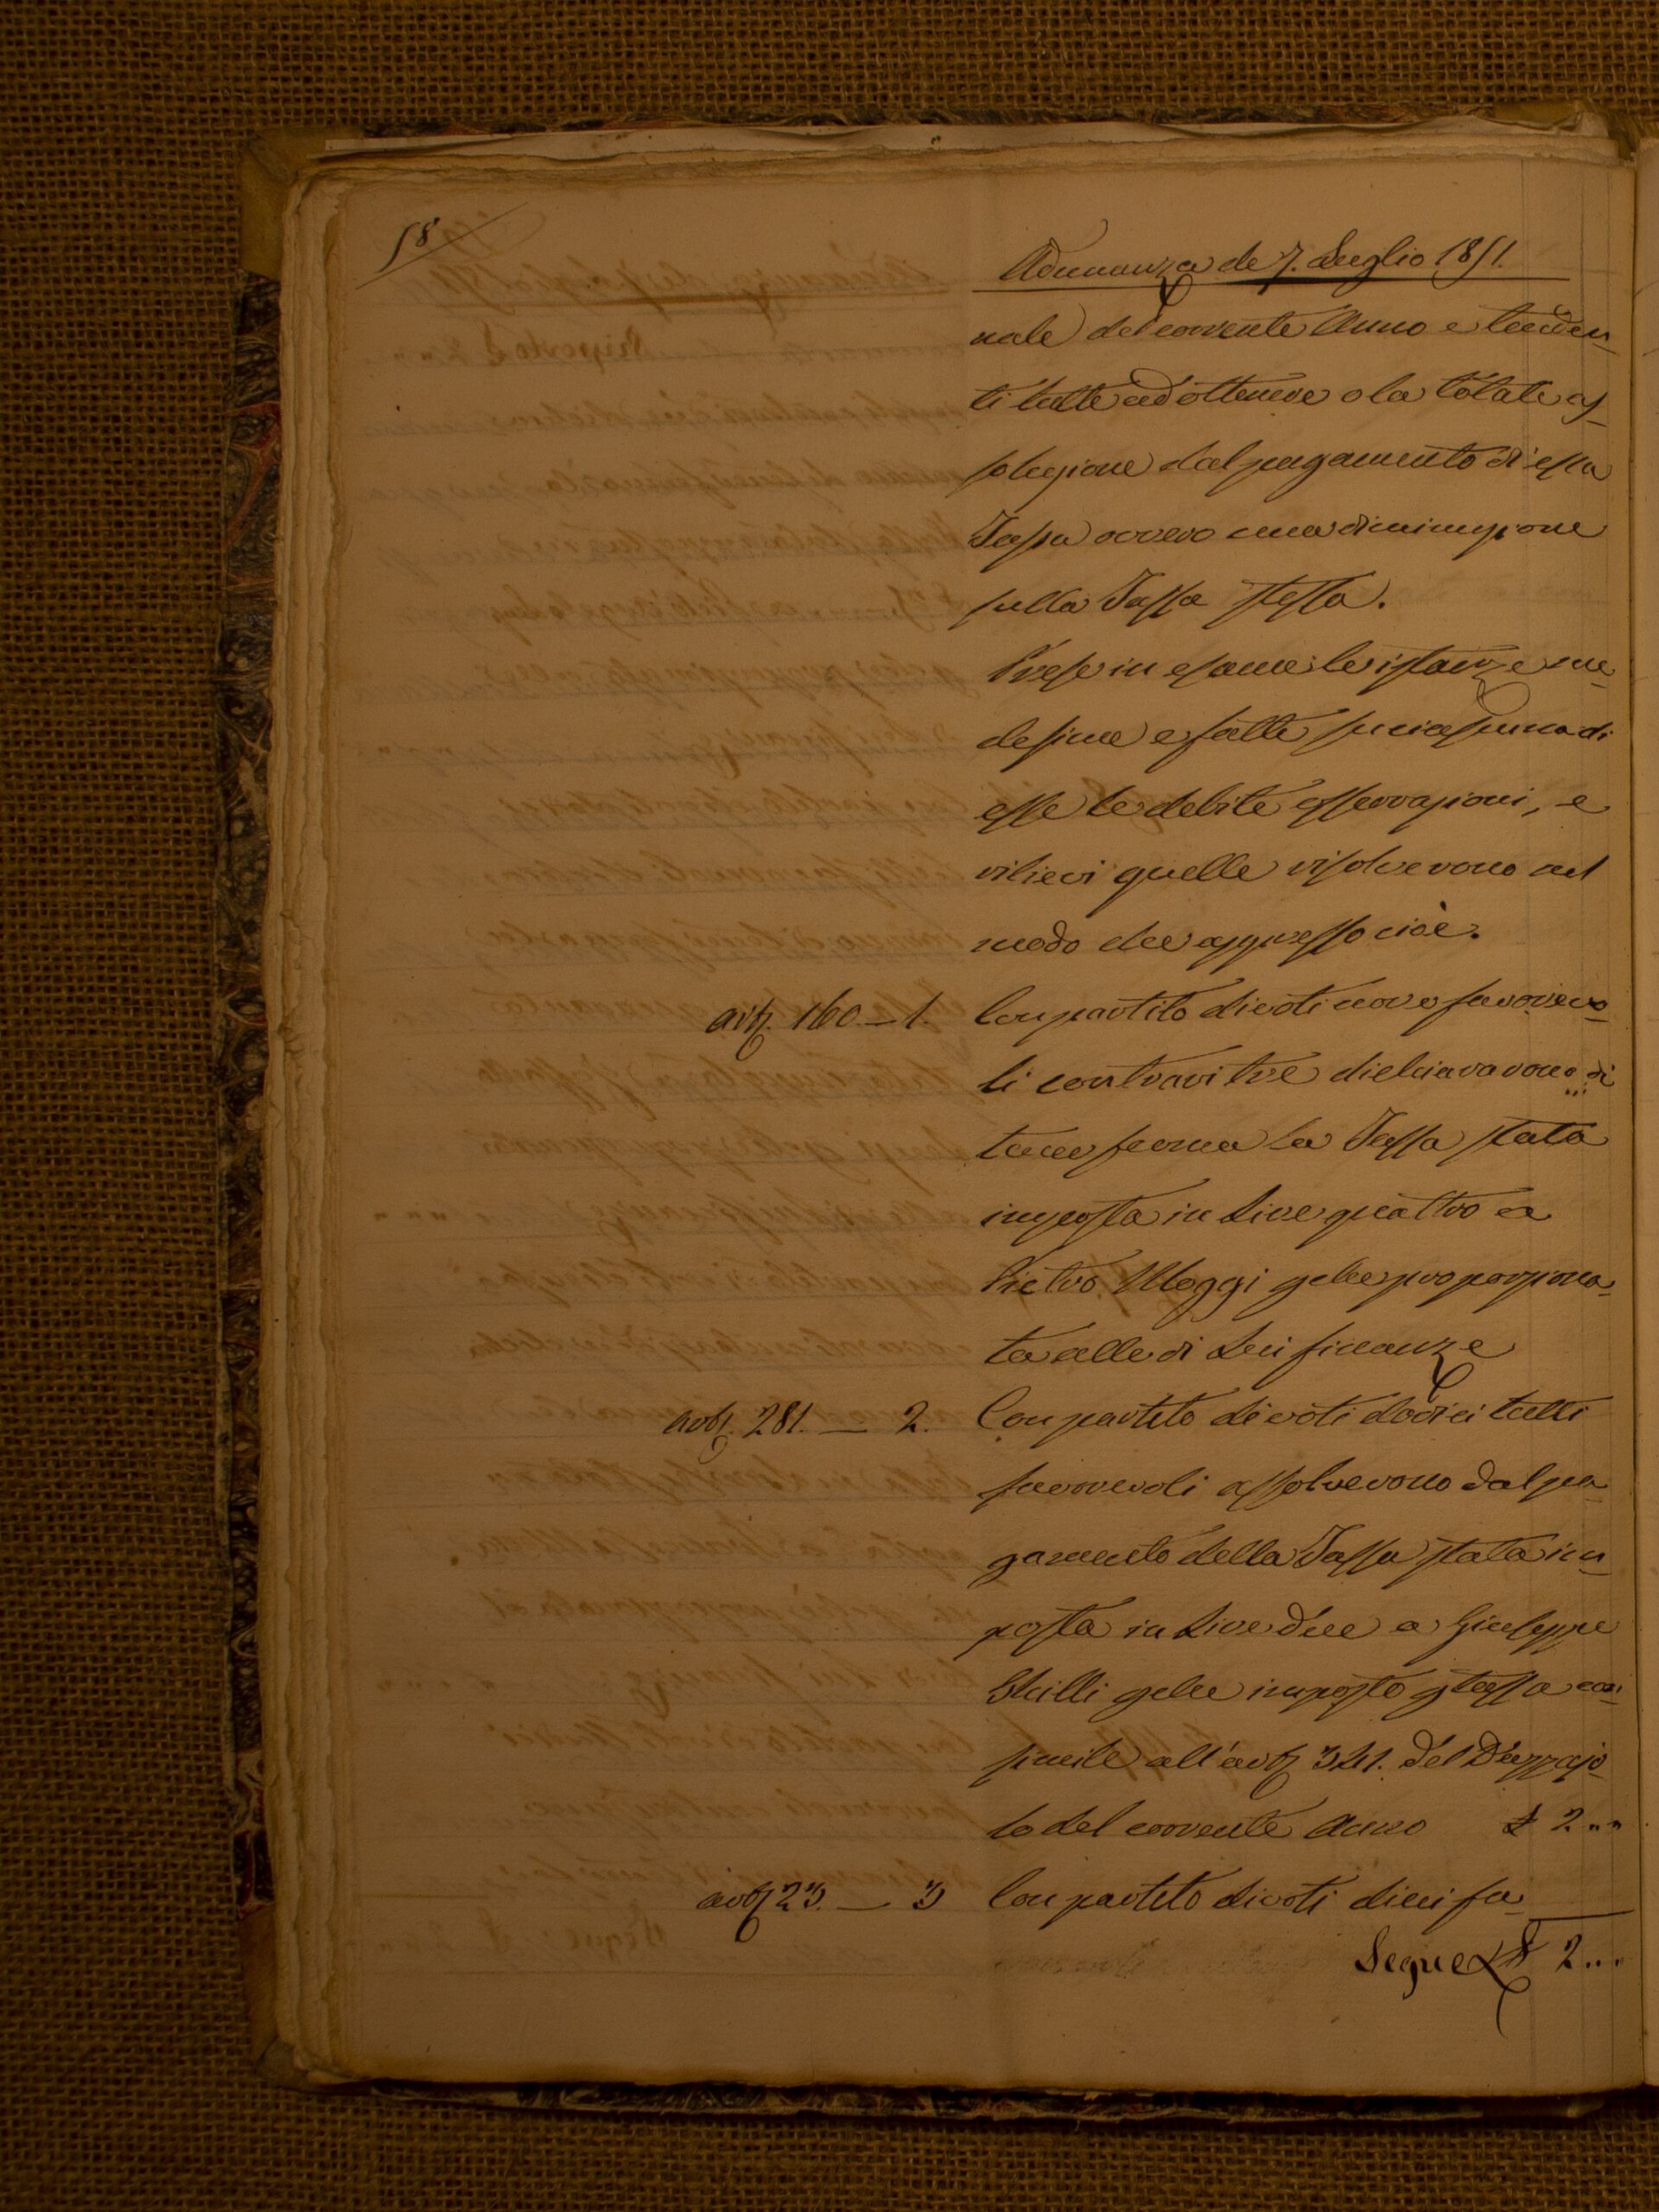 58
Adunanza de 7. Luglio 1851.
nale del corrente Anno e tenden-
ti tutte ad ottenere o la totale as-
soluzione dal pagamento di essa
Tassa ovvero una diminuzione
sulla Tassa stessa.
Prese in esame le istanze me-
desime e fatte su ciascuna di
esse le debite osservazioni, e
rilievi quelle risolverono nel
modo che appresso cioè.
artº. 160. — 1. Con partito di voti nove favorevo-
li contrari tre dichiararono di
tener ferma la Tassa stata
imposta in Lire quattro a
Pietro Moggi perche proporziona-
ta alle di Lui finanze
artº. 281. — 2. Con partito di voti dodici tutti
favorevoli assolverono dal pa-
gamento della Tassa stata im-
posta in Lire due a Giuseppe
perche imposto
all'artº 341. del Dazzajo-
lo del corrente Anno £ 2 „ „
artº 23. — 3 Con partito di voti dieci fa-
Segue £ 2 „ „